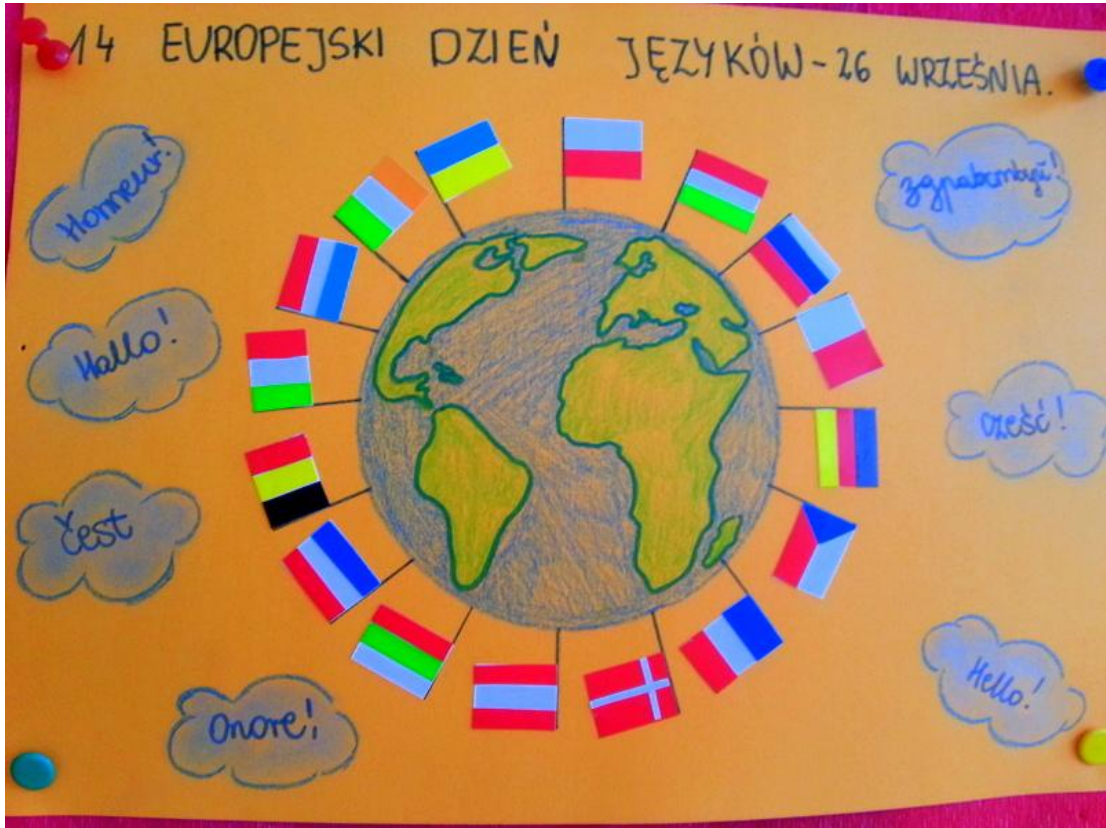 14 EUROPEJSKI DZIEŃ JĘZYKÓW - 26 WRZEŚNIA.
Honneur!
Hallo!
Čest
Onore!
cześć!
Hello!